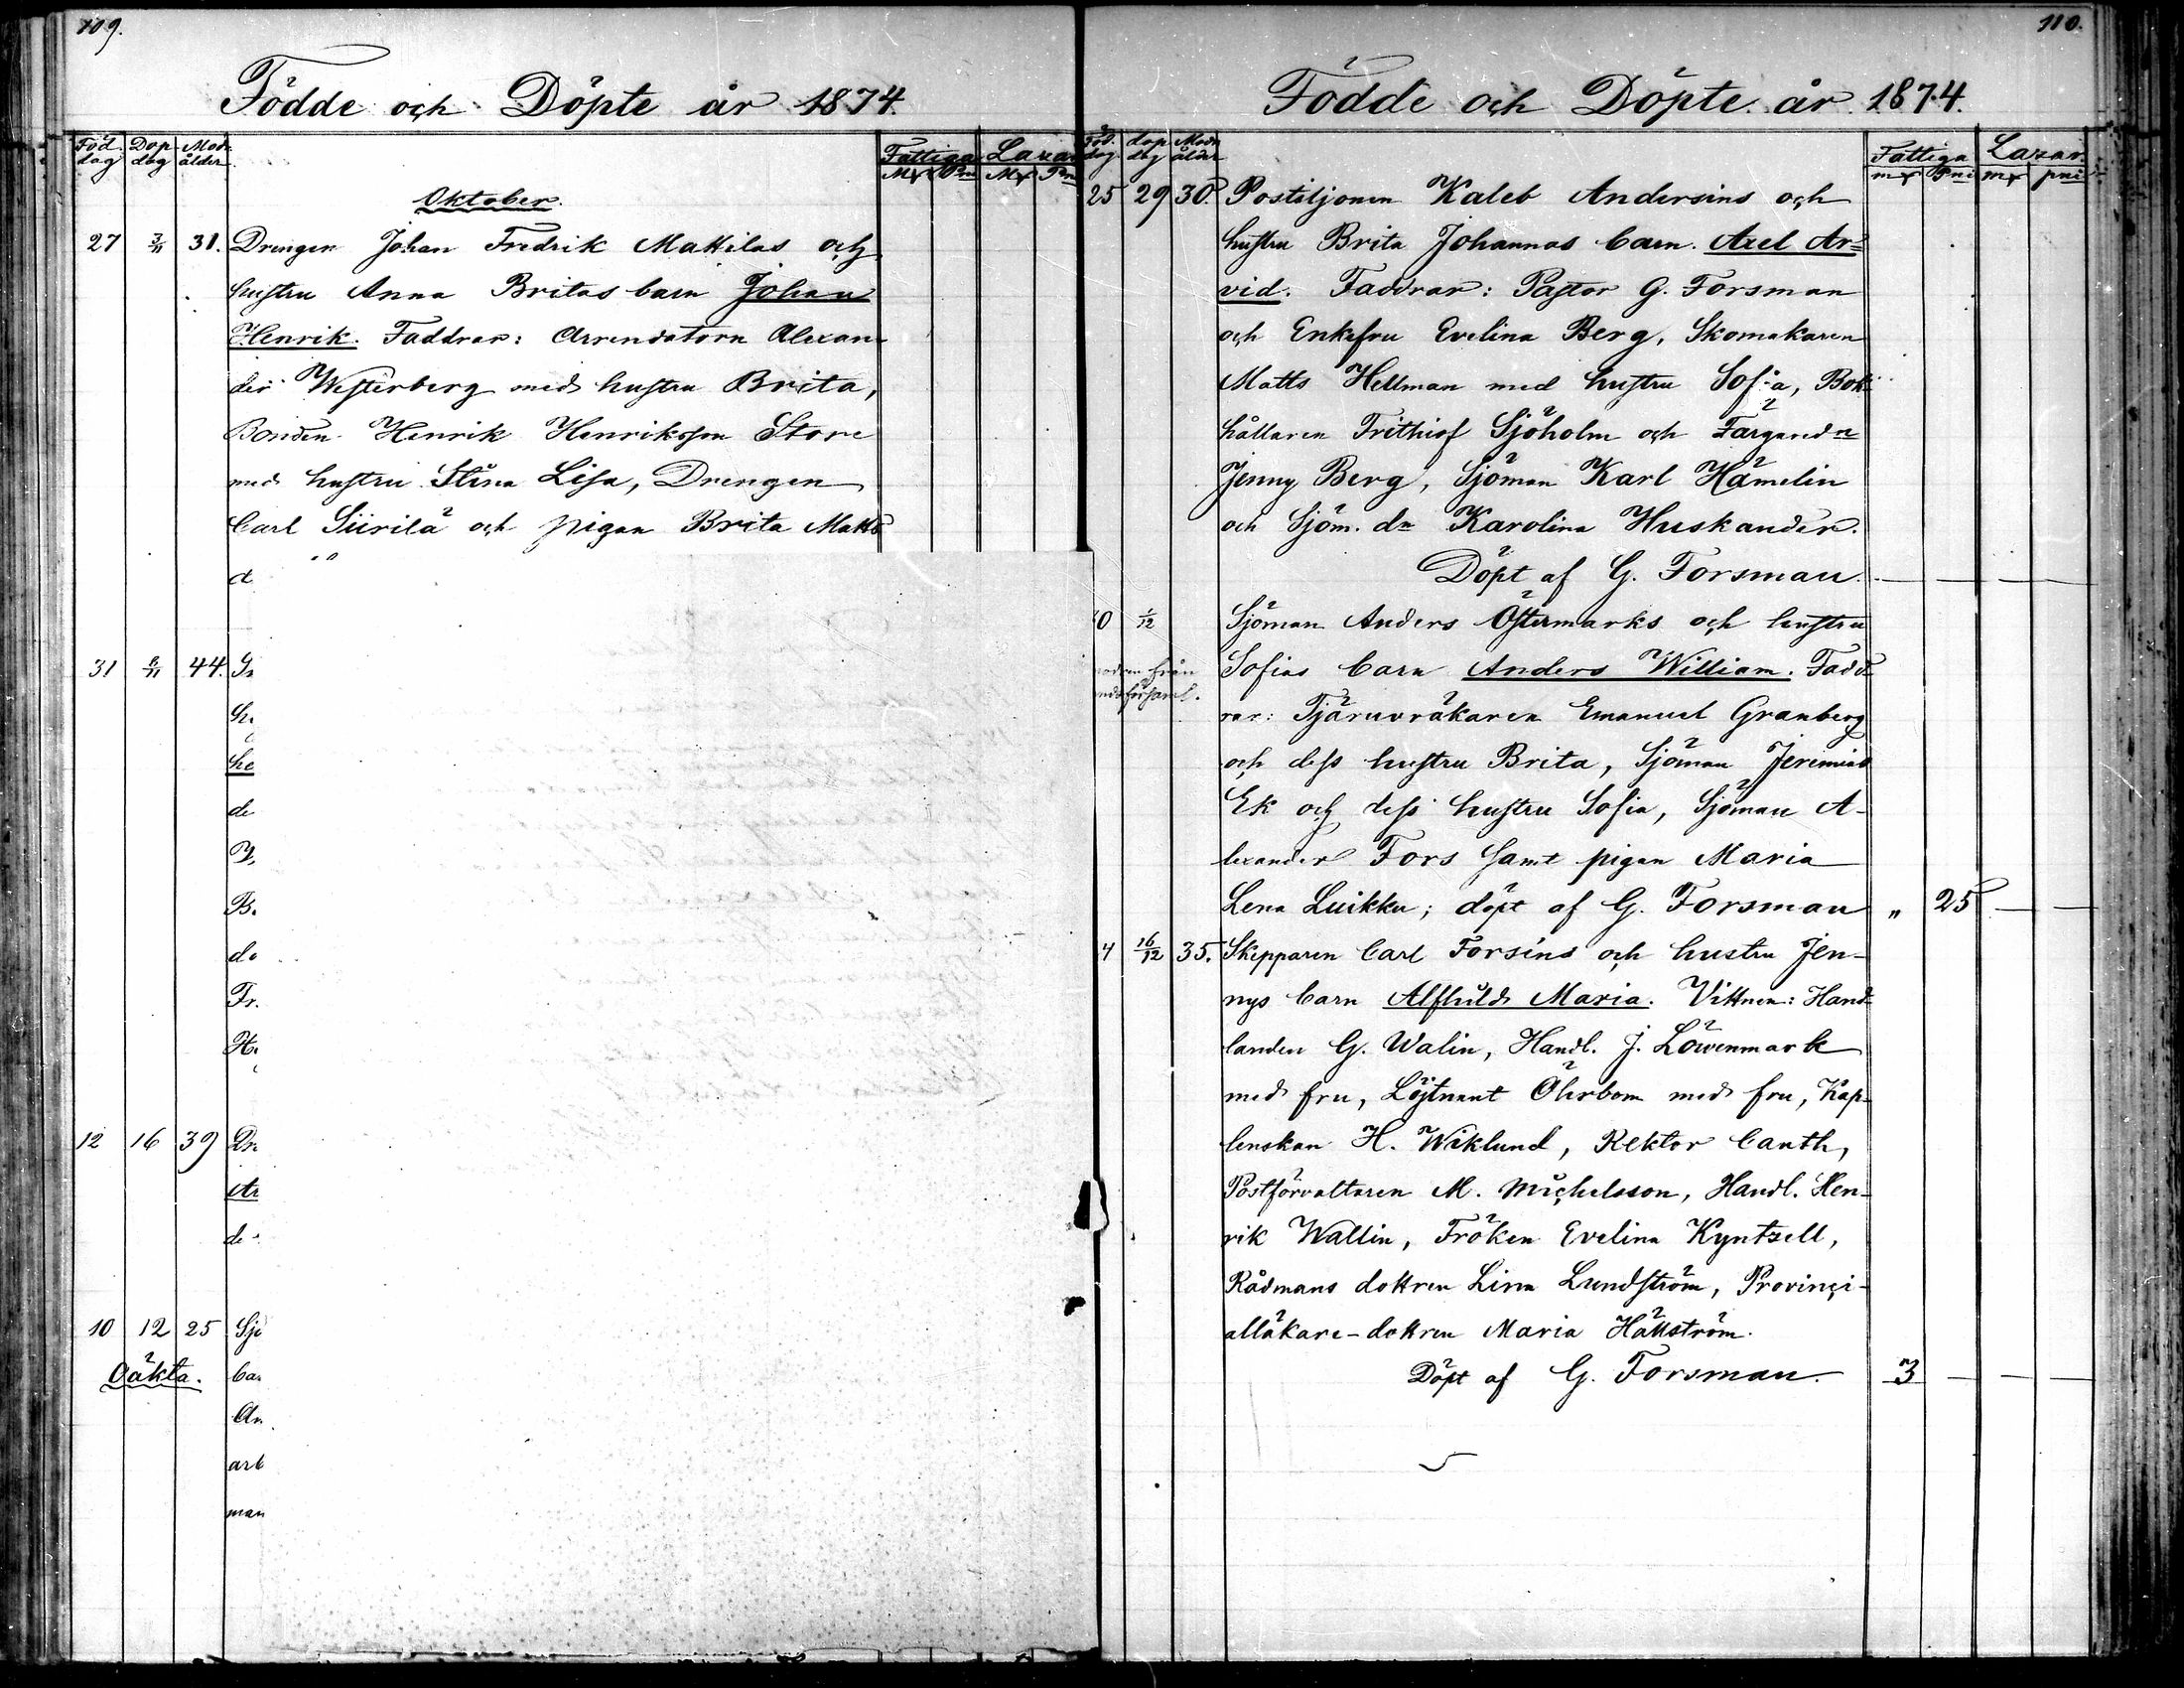 109.
Födde och Döpte år 1874.
Föd. dag Dop dag Mod. ålder Fattiga Lazar
Mk Pni Mk Pni
Oktober.
27 3/11 31. Drengen Johan Fredrik Mattilas och
hustru Anna Britas barn Johan
Henrik. Faddrar: Arrendatorn Alexan
der Westerberg med hustru Brita,
Bonden Henrik Henriksson Store
med hustru Stina Lisa, Drengen
Carl Siirilä och pigan Brita Matts
d
31 8/11 44.
he
de
B.
de
Fr.
12 16 39 Dr
Ar
de
10 12 25 Sjö
Oäkta. bar
An
arb
man
110.
Födde och Döpte år 1874.
Föd. dag dop dag Modr ålder Fattiga Lazar.
mk Pni mk pni
25 29 30. Postiljonen Kaleb Andersins och
hustru Brita Johannas barn. Axel Ar=
vid. Faddrar: Pastor G. Forsman
och Enkefru Evelina Berg, Skomakaren
Matts Hellman med hustru Sofia, Bok
hållaren Frithiof Sjöholm och Färgared=
Jenny Berg, Sjöman Karl Hämelin
och Sjöm. dn Karolina Huskander.
Döpt af G. Forsman.
0 1/12 Sjöman Anders Östermarks och hustru
från Sofias barn Anders William. Fadd
församl. rar: Tjäruvräkaren Emanuel Granberg
och dess hustru Brita, Sjöman Jeremias
Ek och dess hustru Sofia, Sjöman A-
lexander Fors samt pigan Maria
Lena Luikku; döpt af G. Forsman " 25
4 16/12 35. Skepparen Carl Forséns och hustru Jen-
nys barn Alfhild Maria. Vittnen: Hand-
landen G. Walin, Handl. J. Löwenmark
med fru, Löjtnant Öhrbom med fru, Kap-
lenskan H. Wiklund, Rektor Canth,
Postförvaltaren M. Michelsson, Handl. Hen-
rik Wallin, Fröken Evelina Kyntzell,
Rådmans dottren Lina Lundström, Provinci-
alläkare-dottren Maria Hällström.
Döpt af G. Forsman. 3